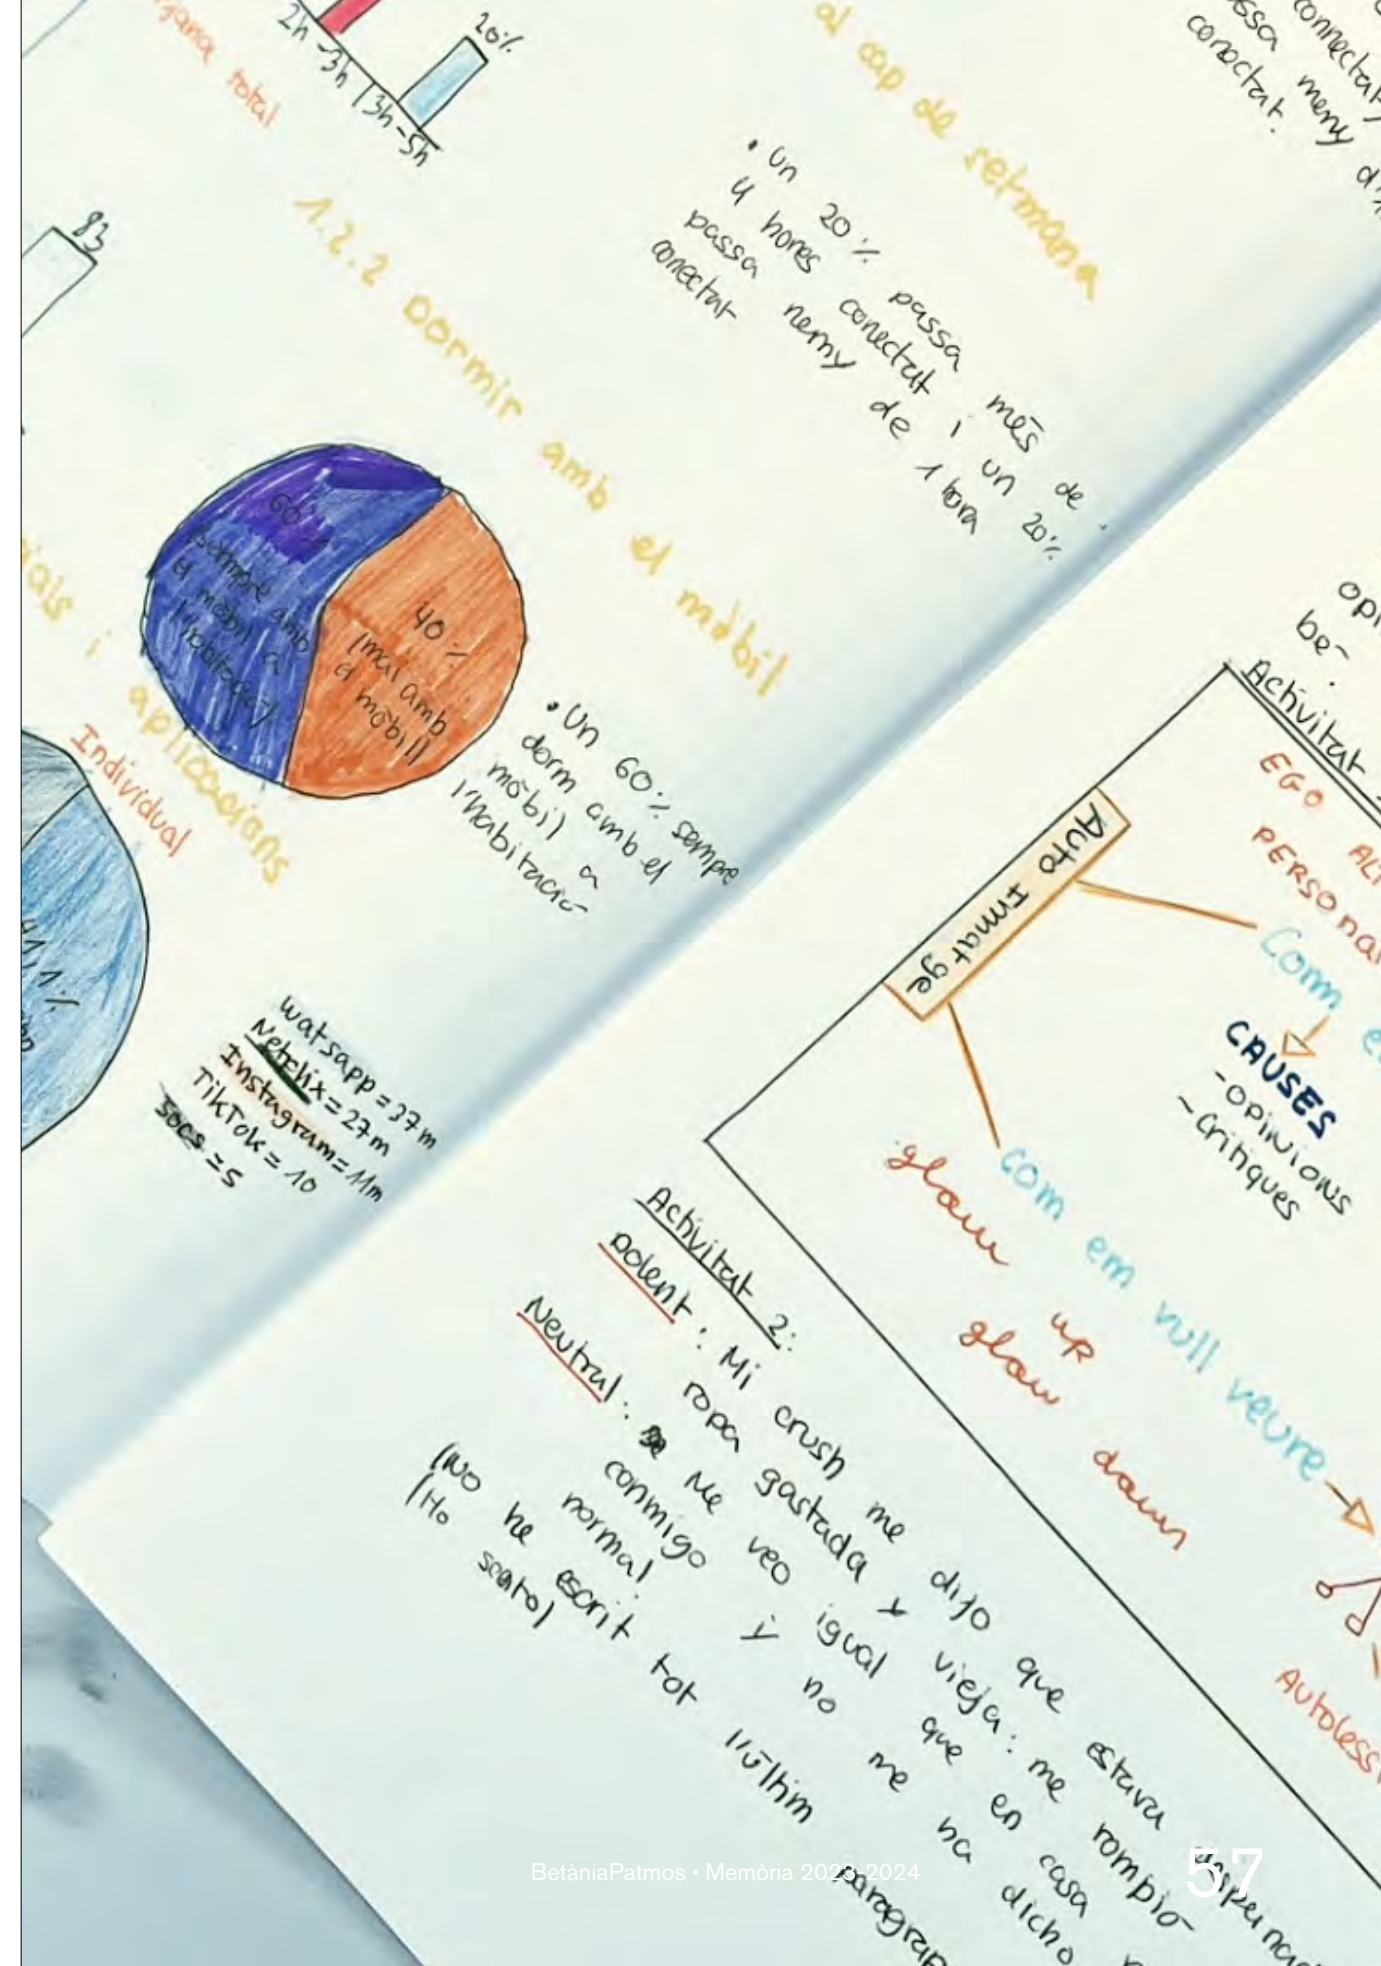 20%
2h-3h
3h-5h
total
al cap de setmana
• Un 20% passa més de
4 hores conectat i un 20%
passa nemy de 1 hora
conectat
connectat
passa meny d
conectat.
83
1.2.2 Dormir amb el mòbil
60%
(sempre amb
el mòbil a
l'habitació)
40%
(mai amb
el mòbil)
• Un 60% sempre
dorm amb el
mòbil a
l'habitació
ials i aplicacions
Individual
watsapp = 37m
Netflix = 27m
Instagram = 11m
TikTok = 10
socs = 5
opi
be
Activitat
EGO
PERSONA
Auto Imatge
Com e
CAUSES
- opinions
- critiques
com em vull veure
glow up
glow down
Autoless
Activitat 2:
Dolent: Mi crush me dijo que estava despeinad
ropa gastada y vieja: me rompió
Neutral: Me veo igual que en casa
conmigo y no me ha dicho
normal
(No he escrit tot l'últim paragraf
BetàniaPatmos • Memòria 2023-2024
57